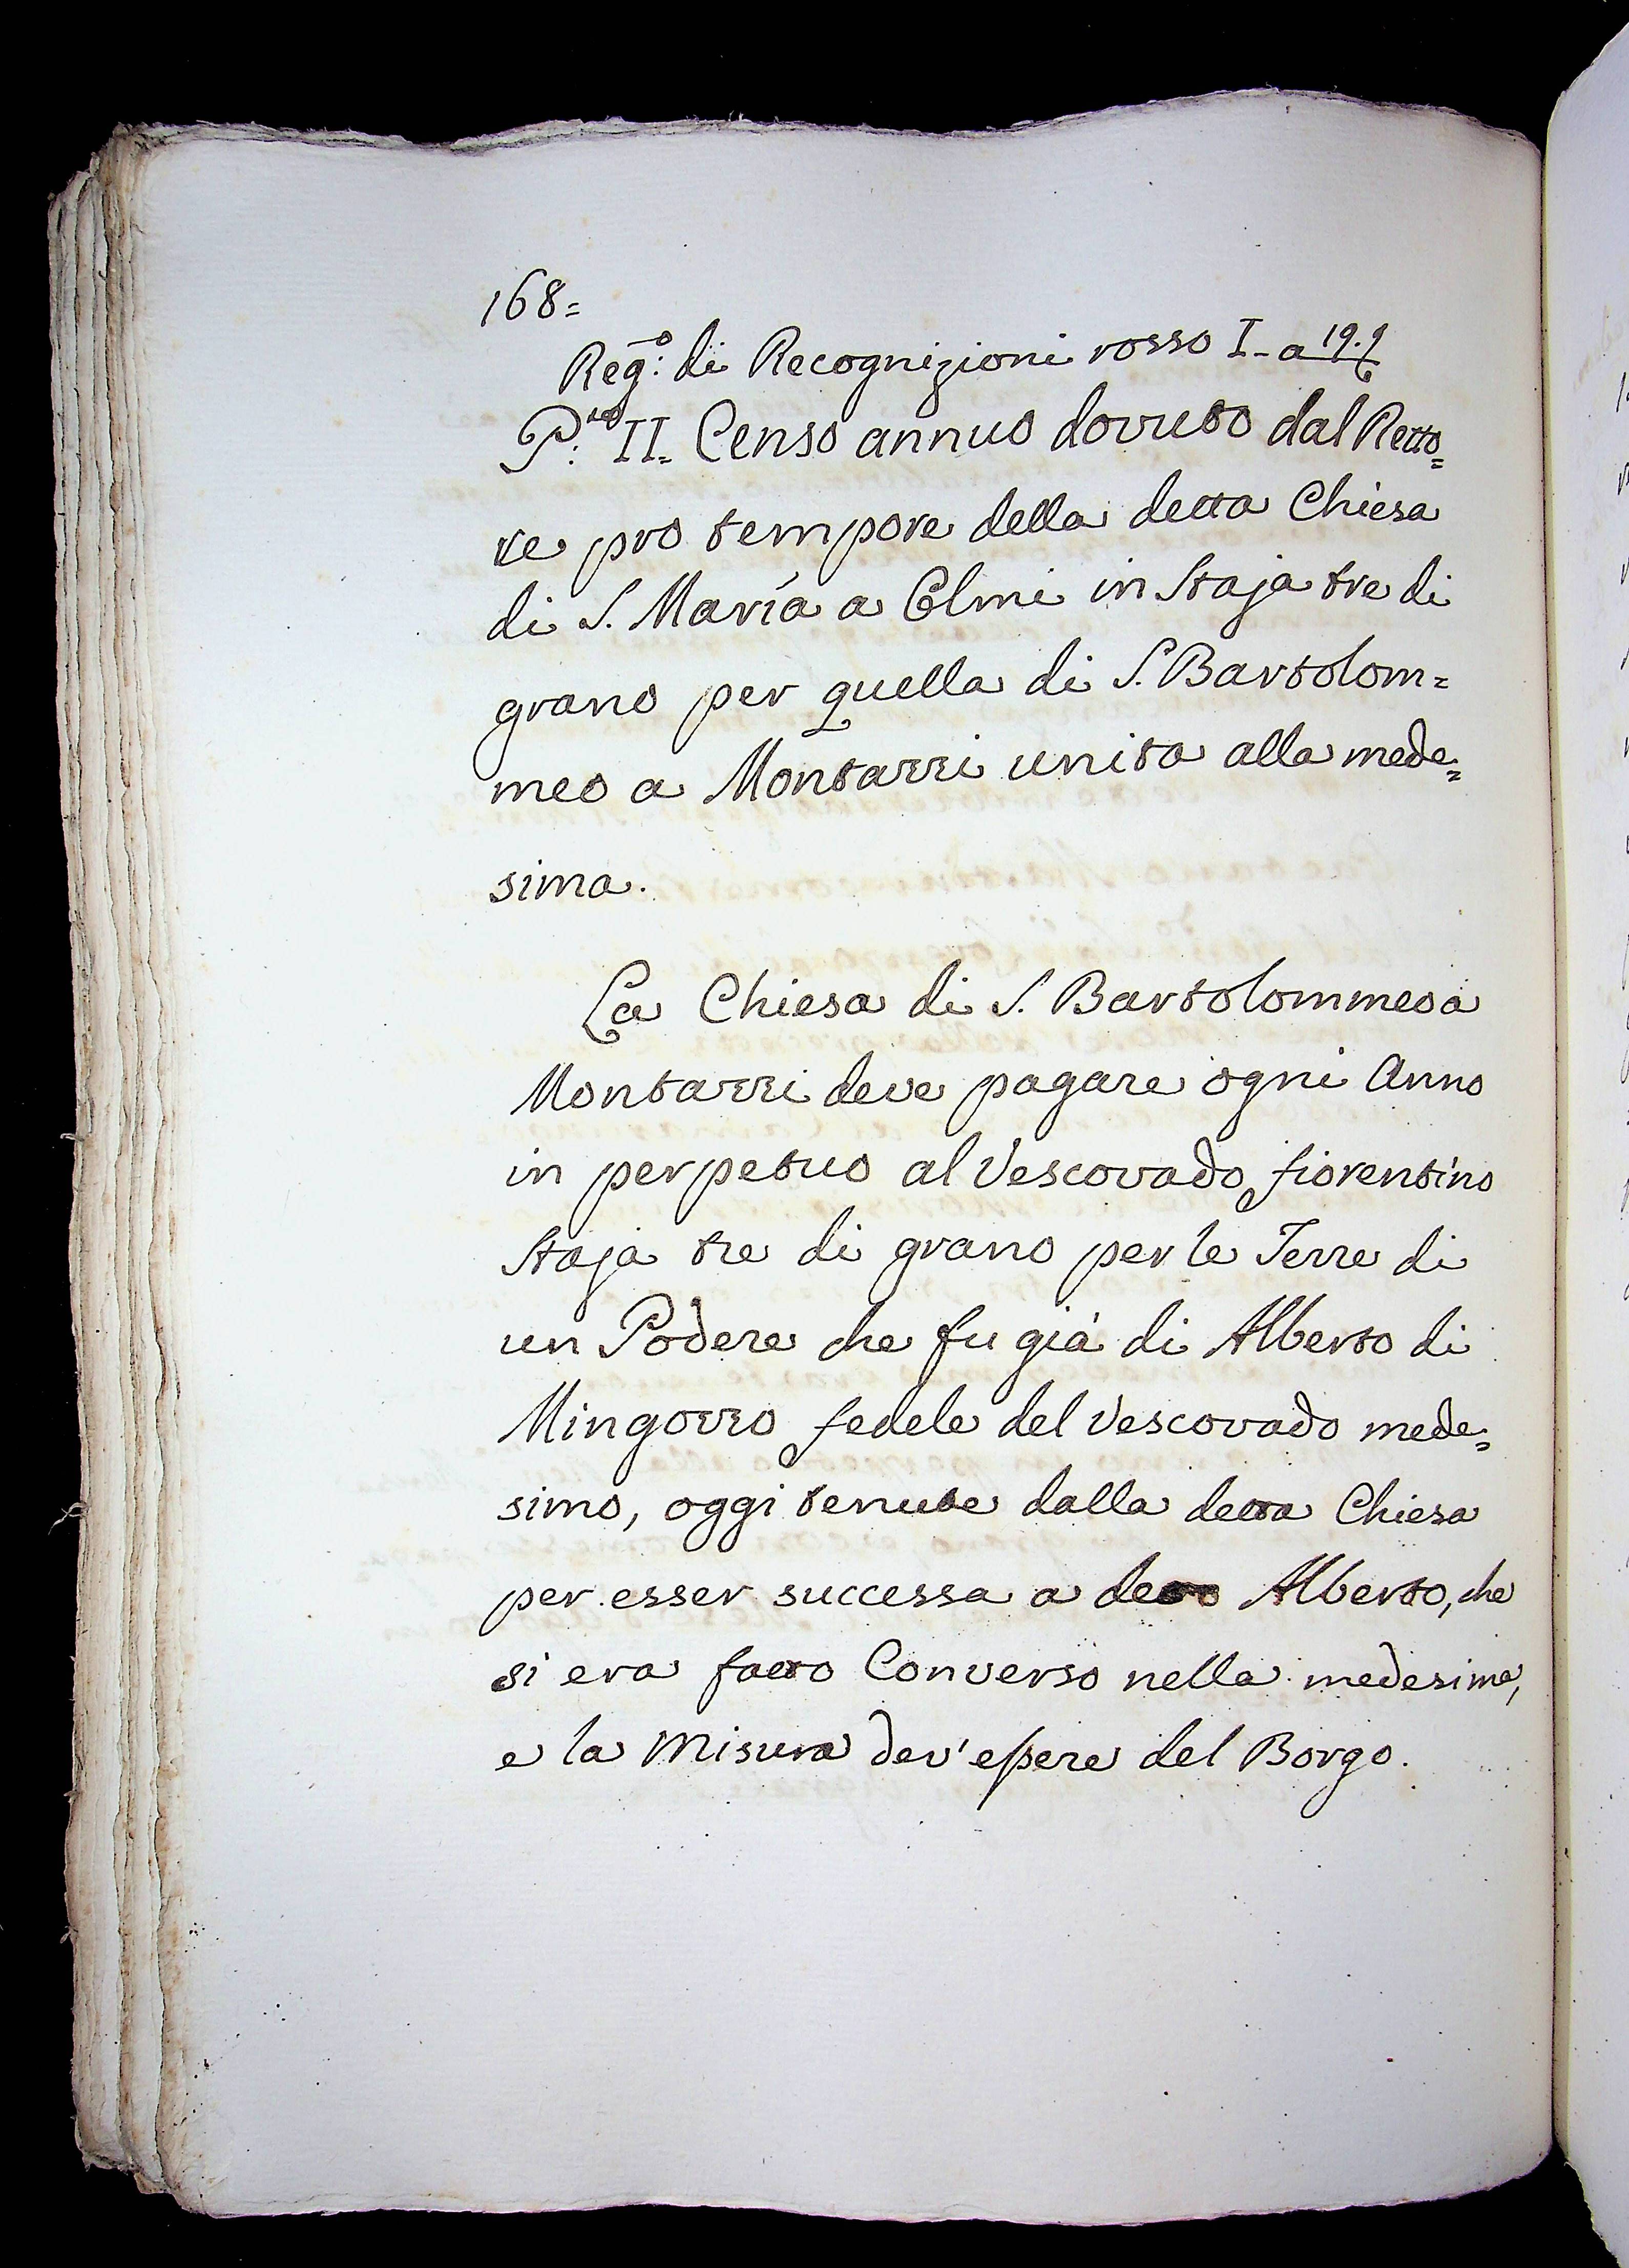 168=
Reg:º di Recognizioni rosso I- a 19.
P:to II= Censo annuo dovuto dal Retto=
re pro tempore della detta Chiesa
di S. María a Elmi in Staja tre di
grano per quella di S. Bartolom=
meo a Montazzi unita alla mede=
sima.
La Chiesa di S. Bartolommeo a
Montazzi deve pagare ogni Anno
in perpetuo al Vescovado fiorentino
Staja tre di grano per le Terre di
un Podere che fu già di Alberto di
Mingozzo fedele del Vescovado mede=
simo, oggi tenute dalla detta Chiesa
per esser successa a detto Alberto, che
si era fatto Converso nella medesima,
e la Misura dev'essere del Borgo.